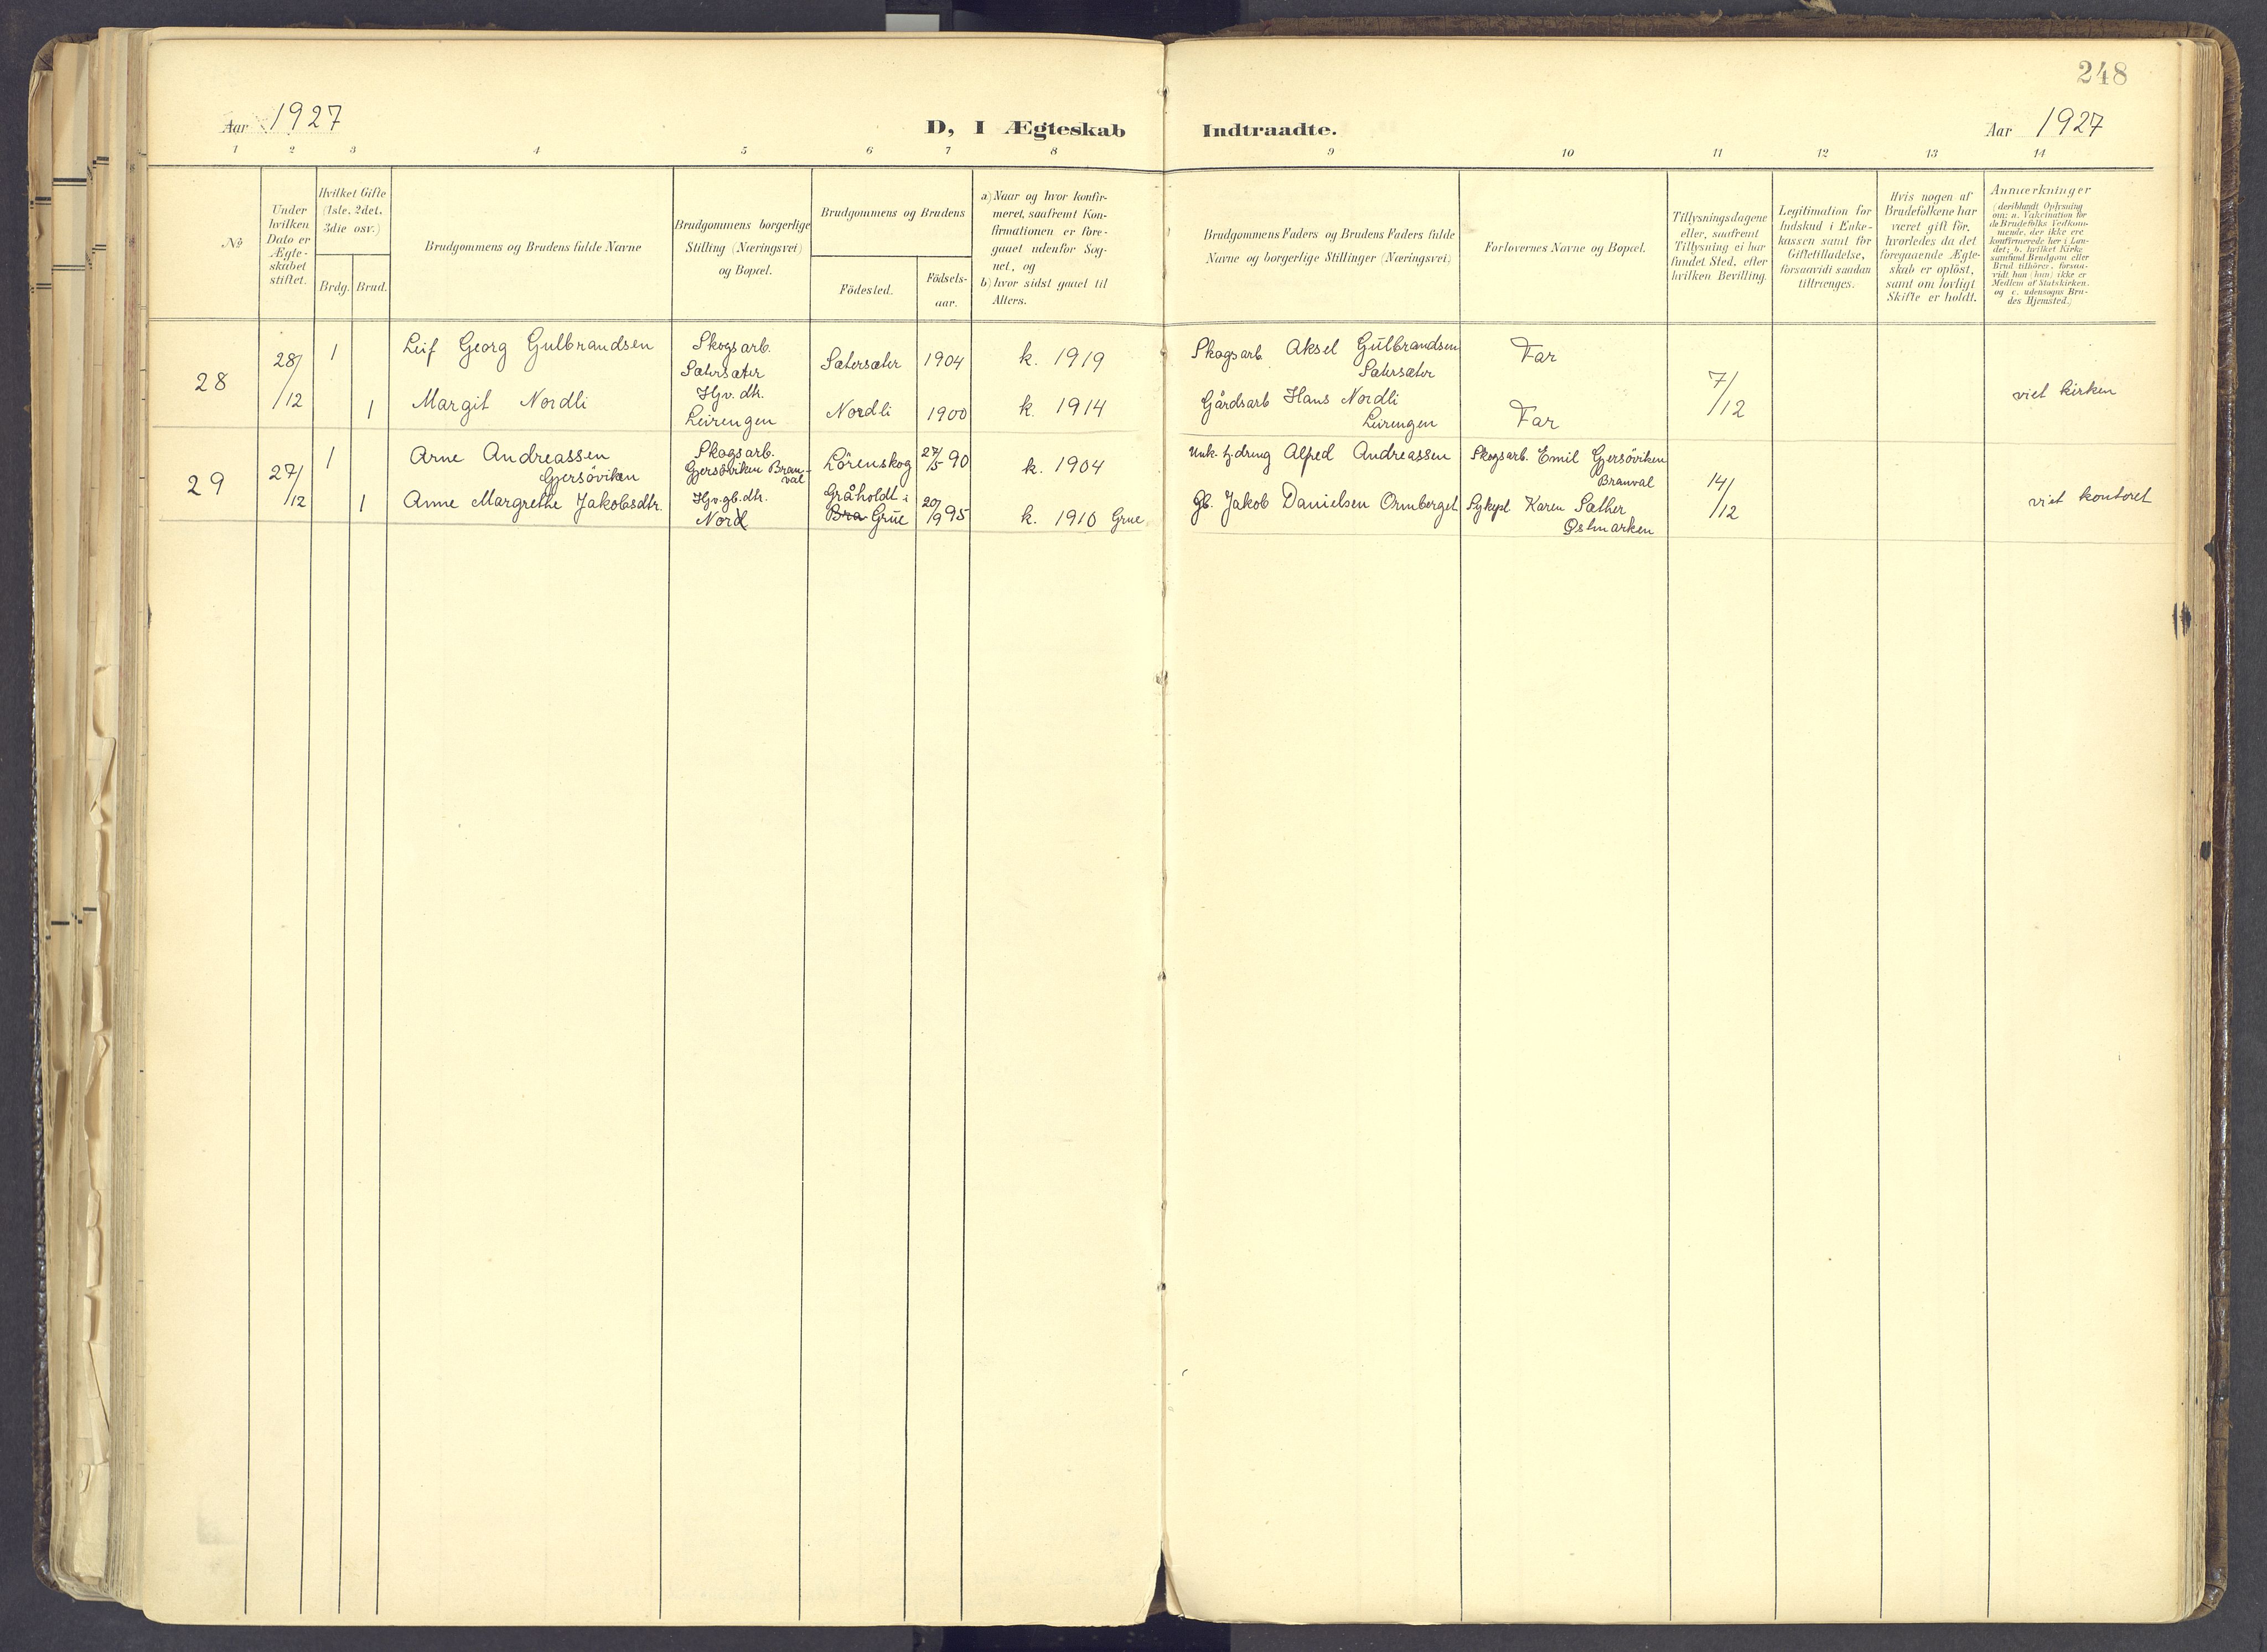 248
Aar 1927
D, I Ægteskab Indtraadte.
Aar 1927
1 2 3 4 5 6 7 8 9 10 11 12 13 14
№
Under hvilken Dato er Ægte-skabet stiftet.
Hvilket Gifte (1ste, 2det, 3die osv.)
Brdg. Brud.
Brudgommens og Brudens fulde Navne
Brudgommens borgerlige Stilling (Næringsvei) og Bopæl.
Brudgommens og Brudens
Födested.
Födsels-aar.
a) Naar og hvor konfir-meret, saafremt Kon-firmationen er fore-gaaet udenfor Sog-net, og
b) hvor sidst gaaet til Alters.
Brudgommens Faders og Brudens Faders fulde Navne og borgerlige Stillinger (Næringsvei)
Forlovernes Navne og Bopæl.
Tillysningsdagene eller, saafremt Tillysning ei har fundet Sted, efter hvilken Bevilling.
Legitimation for Indskud i Enke-kassen samt for Giftetilladelse, forsaavidt saadan tiltrænges.
Hvis nogen af Brudefolkene har været gift för, hvorledes da det foregaaende Ægte-skab er oplöst, samt om lovligt Skifte er holdt.
Anmærkninger
(deriblandt Oplysning om: a. Vakcination for de Brudefolks Vedkom-mende, der ikke ere konfirmerede her i Lan-det; b. hvilket Kirke samfund Brudgom eller Brud tilhörer, forsaa-vidt han (hun) ikke er Medlem af Statskirken. og c. udensogns Bru-des Hjemsted.)
28
28/12
1
Leif Georg Gulbrandsen
Skogsarb.
Sætersæter
Sætersæter
1904
k. 1919
Skogsarb. Aksel Gulbrandsen
Sætersæter
Far
7/12
viet kirken
1
Margit Nordli
Hjv. dtr.
Leirengen
Nordli
1900
k. 1914
Gårdsarb Hans Nordli
Leirengen
Far
29
27/12
1
Arne Andreassen
Gjersöviken
Skogsarb.
Gjersöviken Bran-
val
Lörenskog
27/5 90
k. 1904
Alfred Andreassen
Skogsarb. Emil Gjersöviken
Branval
14/12
viet kontoret
1
Anne Margrethe Jakobsdtr.
Hjv. gb. dtr.
Nord
Gråholdt i
Bra Grue
20/9 95
k. 1910 Grue
Gb. Jakob Danielsen Ormberget
Sykepl Karen Sæther
Østmarken